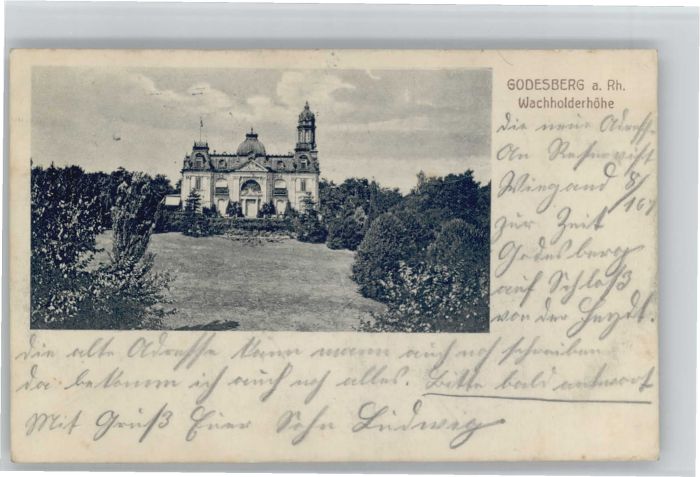 GODESBERG a. Rh.
Wachholderhöhe
die neue Adresse
An Reservist
Wiegand 8/161
zur Zeit
Godesberg
auf Schloß
von der Heydt.
die alte Adresse kann mann auch noch schreiben
da bekomm ich auch noch alles. Bitte bald antwort
Mit Gruß Euer Sohn Ludwig